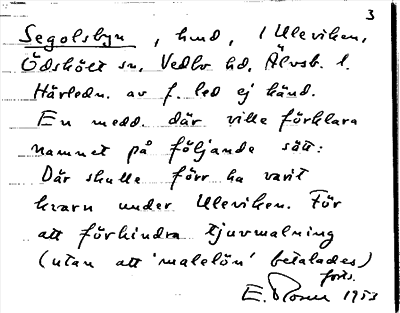 3
Segolsbyn, hmd, i Ulleviken,
Ödskölt sn, Vedbo hd, Älvsb. l.
Härledn. av f. led ej känd.
En medd. där ville förklara
namnet på följande sätt:
Där skulle förr ha varit
kvarn under Ulleviken. För
att förhindra tjuvmalning
(utan att 'malelön' betalades)
forts.
E. 1953